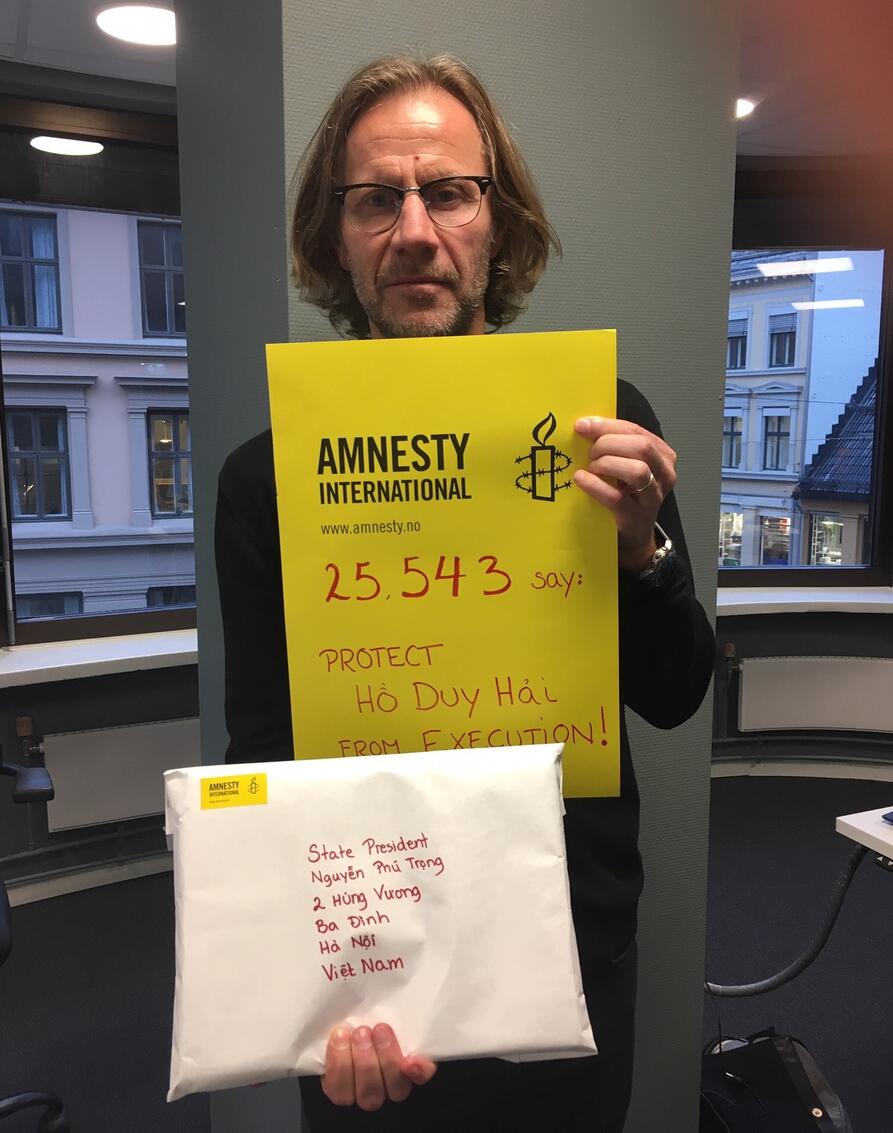 AMNESTY
INTERNATIONAL
www.amnesty.no
25,543 say:
PROTECT
Hồ Duy Hải
FROM EXECUTION!
AMNESTY
INTERNATIONAL
State President
Nguyễn Phú Trọng
2 Hùng Vương
Ba Đình
Hà Nội
Việt Nam